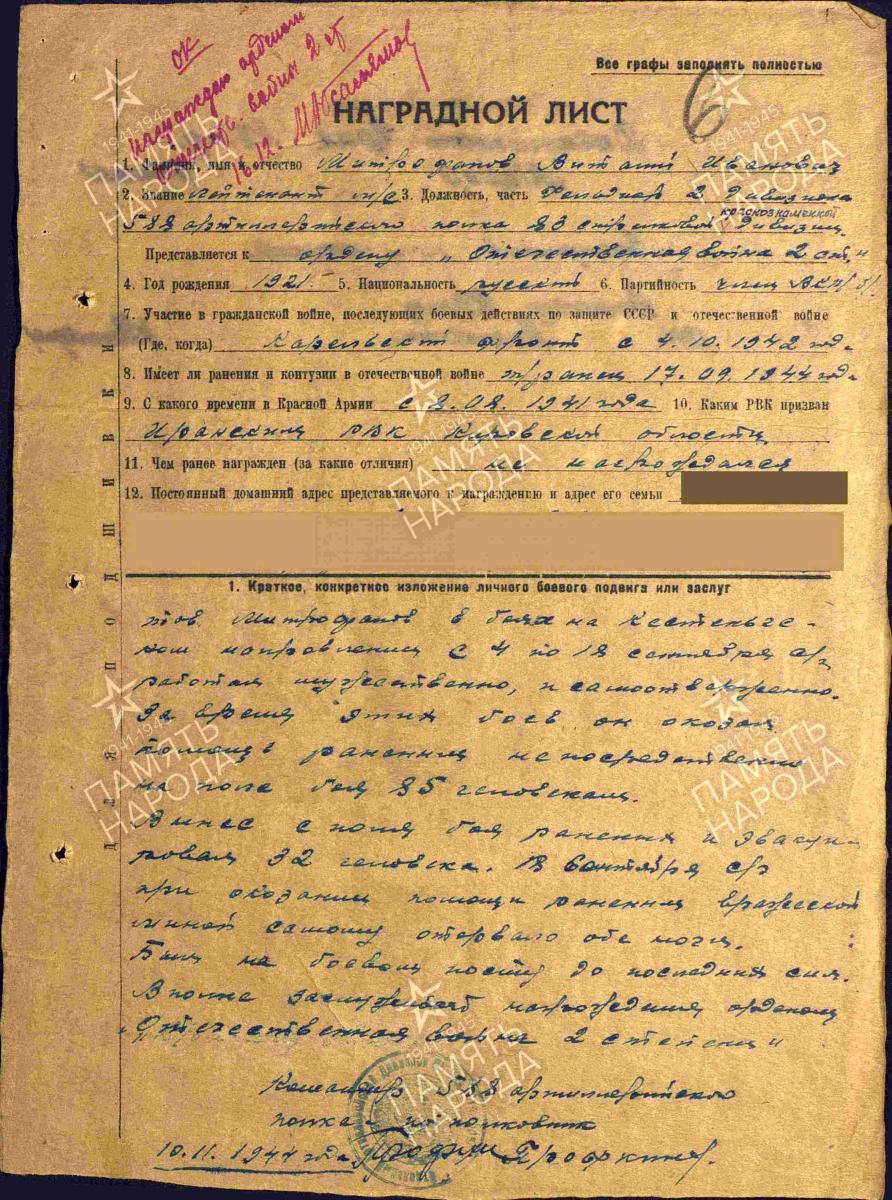 ОК
награждаю орденом
Отечеств. войны 2 ст
16.12.
Все графы заполнять полностью
6
НАГРАДНОЙ ЛИСТ
1. Фамилия, имя и отчество Митрофанов Виталий Иванович
2. Звание Лейтенант м/с 3. Должность, часть Фельдшер 2 Дивизиона
краснознаменной
588 артиллерийского полка 83 стрелковой Дивизии
Представляется к ордену „Отечественная война 2 ст."
4. Год рождения 1921 5. Национальность русский 6. Партийность член ВКП/б/.
7. Участие в гражданской войне, последующих боевых действиях по защите СССР и отечественной войне
(Где, когда) Карельский фронт с 4.10.1942 год.
8. Имеет ли ранения и контузии в отечественной войне т/ранен 17.09.1944 год.
9. С какого времени в Красной Армии с 8.08.1941 года 10. Каким РВК призван
Яранским РВК Кировской области
11. Чем ранее награжден (за какие отличия) не награждался
12. Постоянный домашний адрес представляемого к награждению и адрес его семьи
ДЛЯ ПОДШИВКИ
1. Краткое, конкретное изложение личного боевого подвига или заслуг
тов. Митрофанов в боях на Кестеньгс-
ком направлении с 4 по 18 сентября с/г
работал мужественно, и самоотверженно.
За время этих боев он оказал
помощь раненым непосредственно
на поле боя 85 человекам.
Вынес с поля боя раненых и эвакуи-
ровал 32 человека. 18 сентября с/г
при оказании помощи раненым вражеской
миной самому оторвало обе ноги.
Был на боевом посту до последних сил.
Вполне заслуживает награждения орденом
„Отечественная война 2 степени"
Командир 588 артиллерийского
полка – подполковник
10.11.1944 года
ПАМЯТЬ НАРОДА
1941-1945